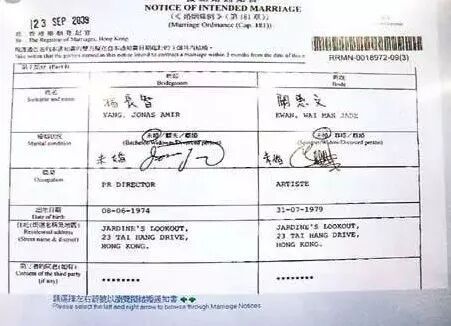 23 SEP 2009
NOTICE OF INTENDED MARRIAGE
(《婚姻條例》(第181章))
(Marriage Ordinance (Cap. 181))
To The Registrar of Marriages, Hong Kong
Take notice that the parties named in this notice intend to contract a marriage within 3 months from the date of this n
RRMN-0018972-09(3)
Bridegroom
Bride
姓名
Surname and name
楊長智
YANG, JONAS AMIR
關惠文
KWAN, WAI MAN JADE
婚姻狀況
Marital condition
未婚
未婚
職業
Occupation
PR DIRECTOR
ARTISTE
出生日期
Date of birth
08-06-1974
31-07-1979
Residential address
(Street name & district)
JARDINE'S LOOKOUT,
23 TAI HANG DRIVE,
HONG KONG.
JARDINE'S LOOKOUT,
23 TAI HANG DRIVE,
HONG KONG.
Consent of the third party
(if any)
********
********
請選擇左右箭號以瀏覽擬結婚通知書
Please select the left and right arrow to browse through Marriage Notices